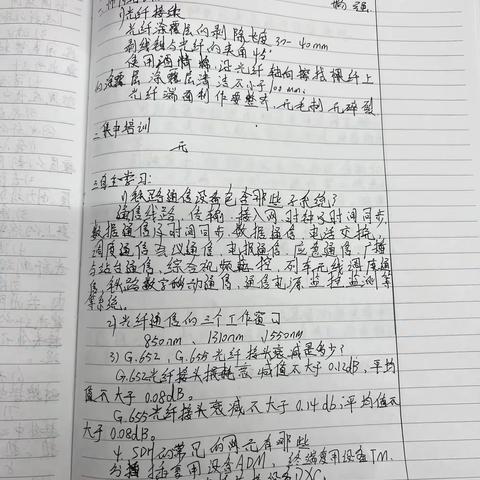 1) 光纤接续
光纤涂覆层的剥除长度30-40mm
剥线钳与光纤的夹角45°
使用酒精棉,沿光纤轴向擦拭裸纤上
的涂覆层,涂覆层清洁不小于100mm.
光纤端面制作要整齐,无毛刺,无碎裂
二.集中培训
无
三.自主学习:
1)铁路通信设备包含哪些子系统?
通信线路,传输,接入网,时钟及时间同步,
数据通信,电话交换,
调度通信,会议通信,电报通信,应急通信,广播
与站台通信,综合视频监控,列车无线调度通
信,铁路数字移动通信,通信电源,监控监测等
等系统。
2)光纤通信的三个工作窗口
850nm、1310nm、1550nm
3) G.652、G.655光纤接头衰减是多少?
G.652光纤接头损耗衰减值不大于0.12dB,平均
值不大于0.08dB。
G.655光纤接头衰减不大于0.14db;平均值不
大于0.08dB。
4. SDH的常见的网元有哪些
分插复用设备ADM、终端复用设备TM、
设备DXC